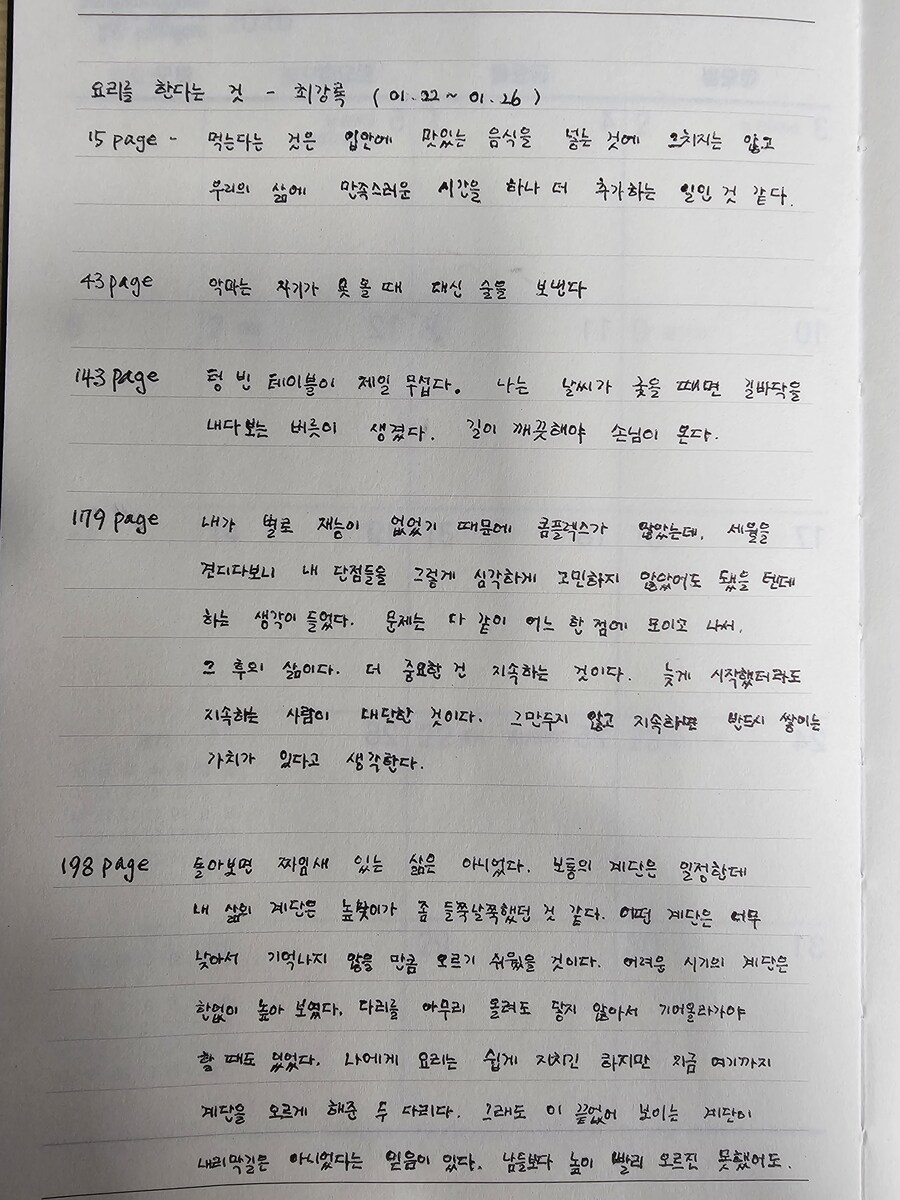 요리를 한다는 것 - 최강록 (01.22~01.26)
15 page - 먹는다는 것은 입안에 맛있는 음식을 넣는 것에 그치지는 않고
우리의 삶에 만족스러운 시간을 하나 더 추가하는 일인 것 같다.
43 page 악마는 자기가 못 올 때 대신 술을 보낸다
143 page 텅 빈 테이블이 제일 무섭다. 나는 날씨가 궂을 때면 길바닥을
내다보는 버릇이 생겼다. 길이 깨끗해야 손님이 온다.
179 page 내가 별로 재능이 없었기 때문에 콤플렉스가 많았는데, 세월을
견디다보니 내 단점들을 그렇게 심각하게 고민하지 않았어도 됐을 텐데
하는 생각이 들었다. 문제는 다 같이 어느 한 점에 모이고 나서,
그 후의 삶이다. 더 중요한 건 지속하는 것이다. 늦게 시작했더라도
지속하는 사람이 대단한 것이다. 그만두지 않고 지속하면 반드시 쌓이는
가치가 있다고 생각한다.
198 page 돌아보면 짜임새 있는 삶은 아니었다. 보통의 계단은 일정한데
내 삶의 계단은 높낮이가 좀 들쭉날쭉했던 것 같다. 어떤 계단은 너무
낮아서 기억나지 않을 만큼 오르기 쉬웠을 것이다. 어려운 시기의 계단은
한없이 높아 보였다. 다리를 아무리 올려도 닿지 않아서 기어올라가야
할 때도 있었다. 나에게 요리는 쉽게 지치긴 하지만 지금 여기까지
계단을 오르게 해준 두 다리다. 그래도 이 끝없어 보이는 계단이
내리막길은 아니었다는 믿음이 있다. 남들보다 높이 빨리 오르진 못했어도.